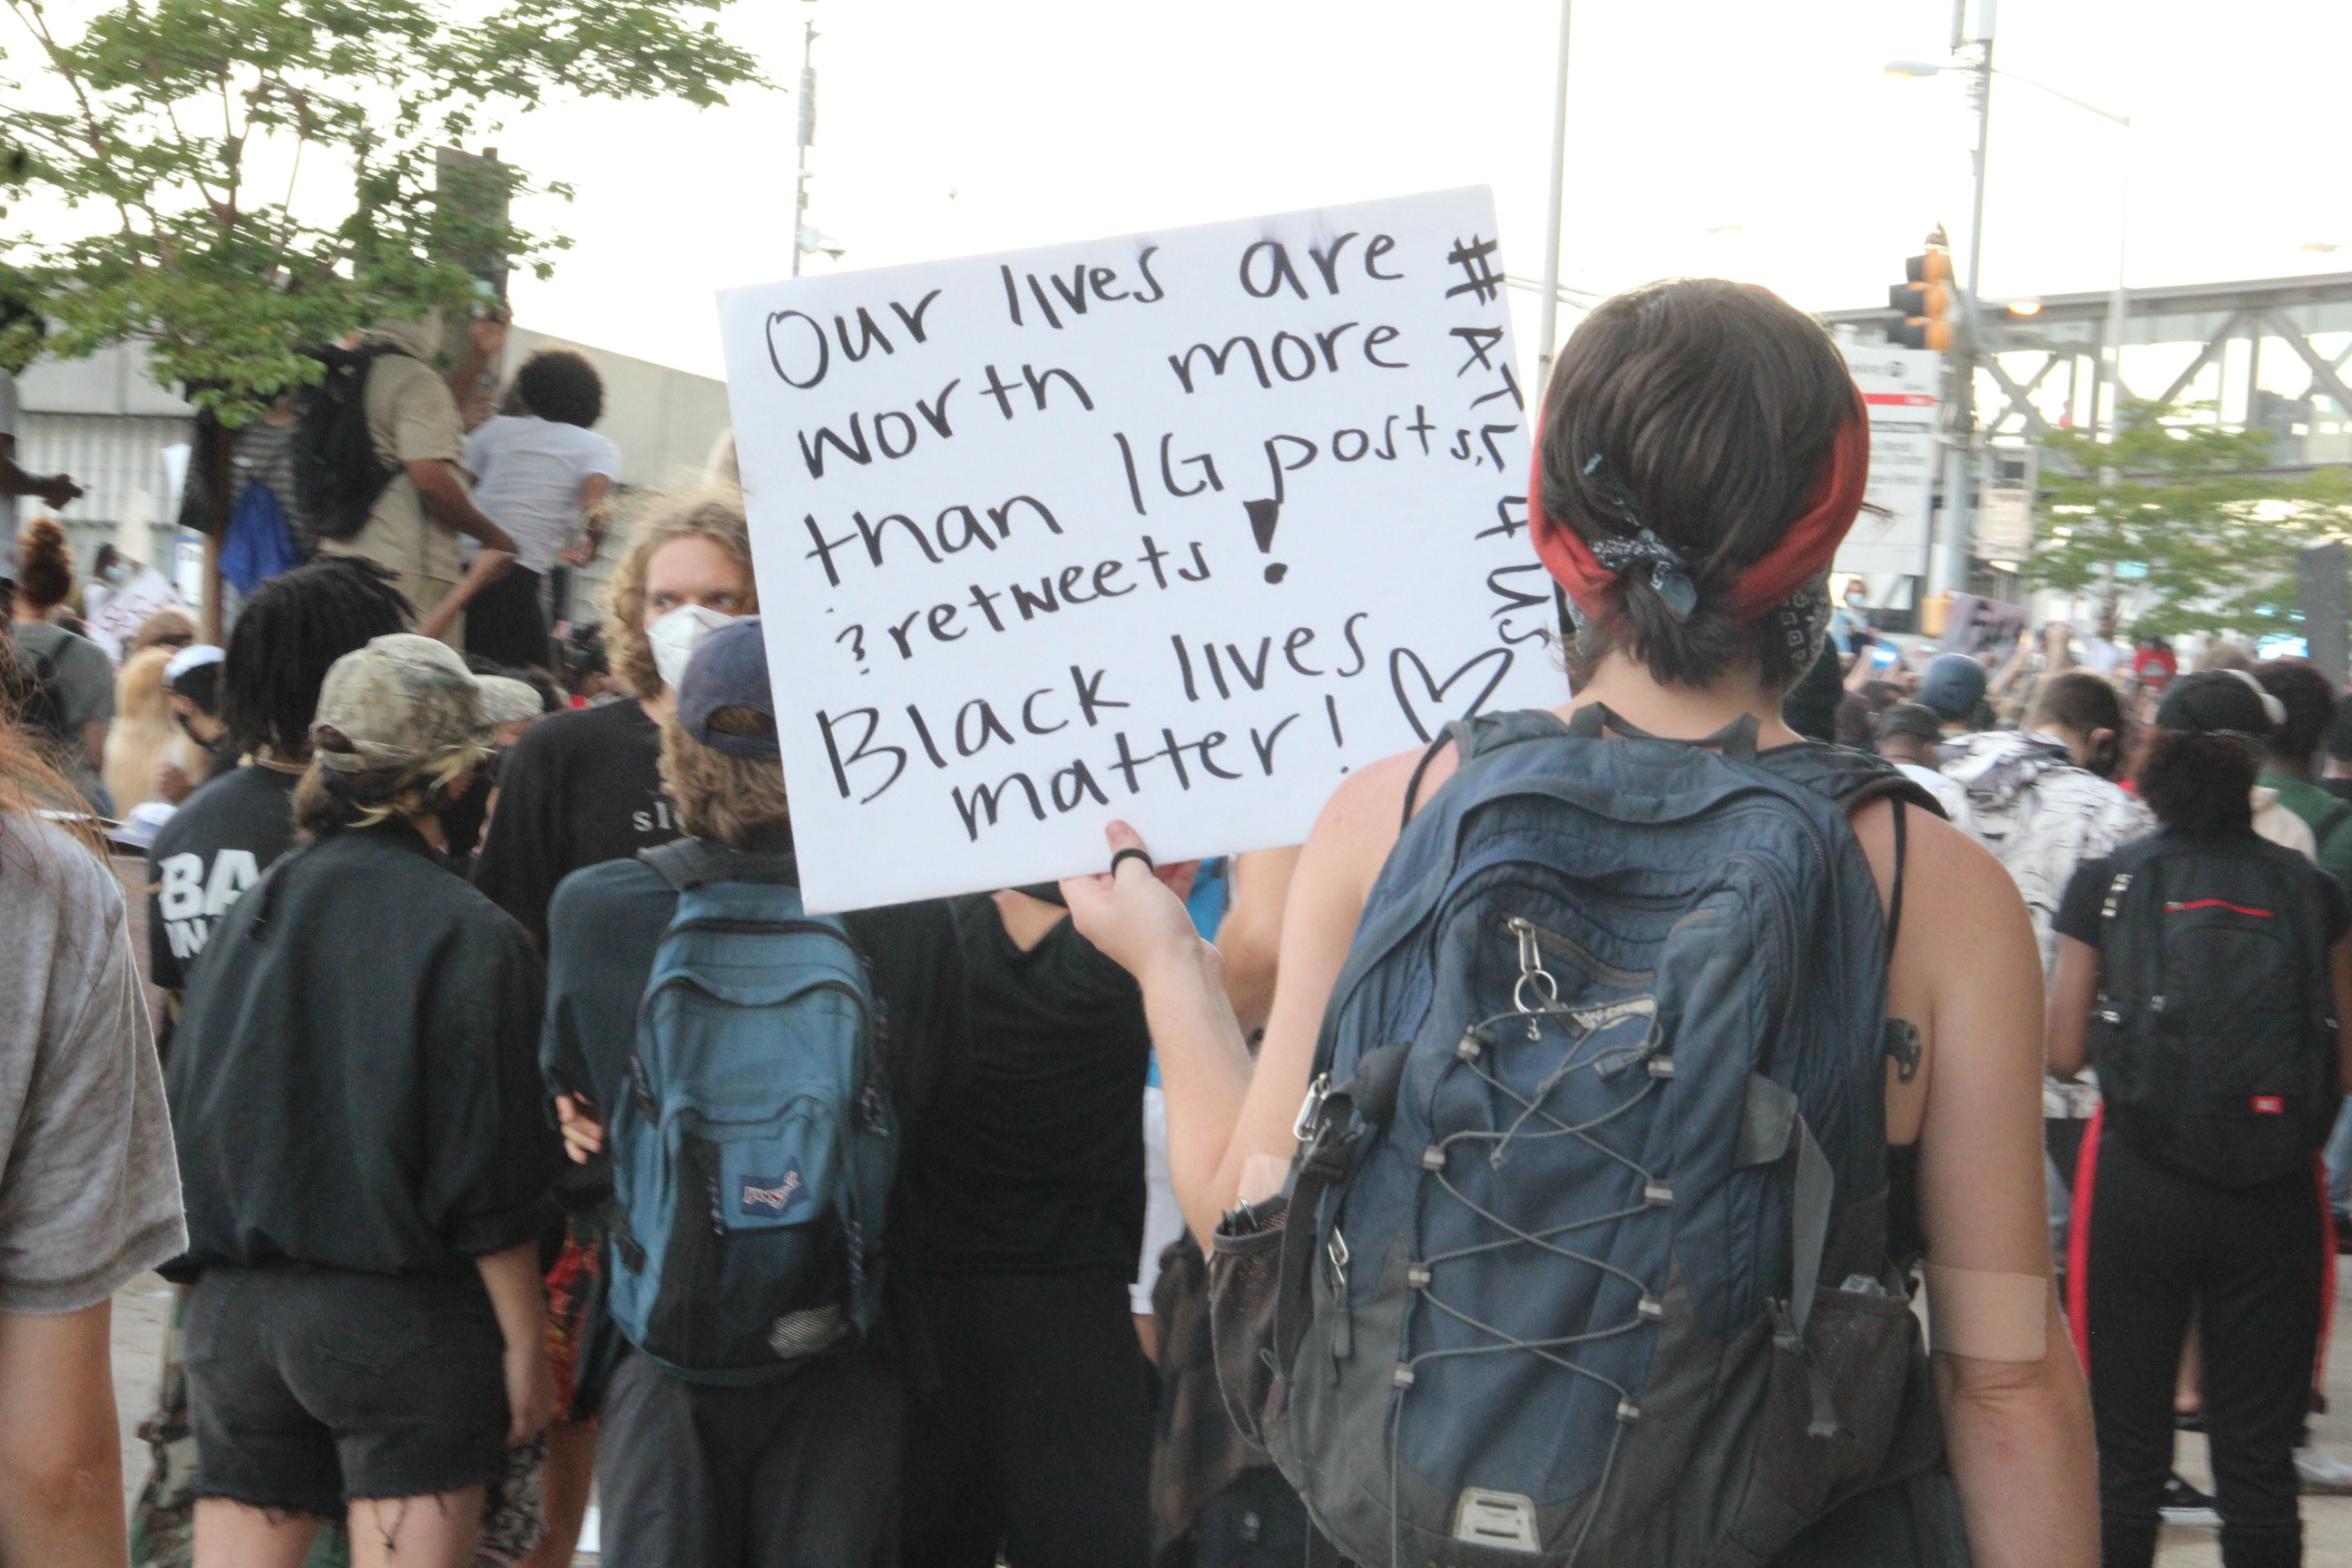 Our lives are
worth more
than IG posts
& retweets!
Black lives
matter!
#ATL4US
BA
IN
JANSPORT